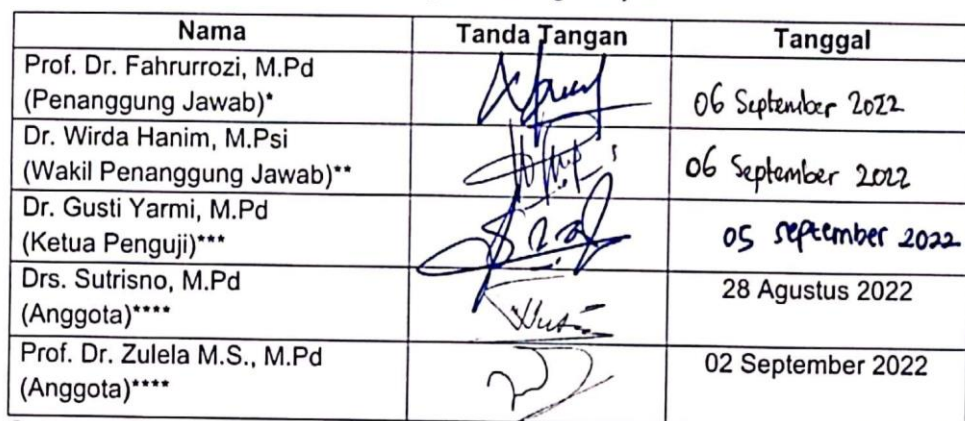 Nama Tanda Tangan Tanggal
Prof. Dr. Fahrurrozi, M.Pd
(Penanggung Jawab)* 06 September 2022
Dr. Wirda Hanim, M.Psi
(Wakil Penanggung Jawab)** 06 September 2022
Dr. Gusti Yarmi, M.Pd
(Ketua Penguji)*** 05 september 2022
Drs. Sutrisno, M.Pd 28 Agustus 2022
(Anggota)****
Prof. Dr. Zulela M.S., M.Pd 02 September 2022
(Anggota)****